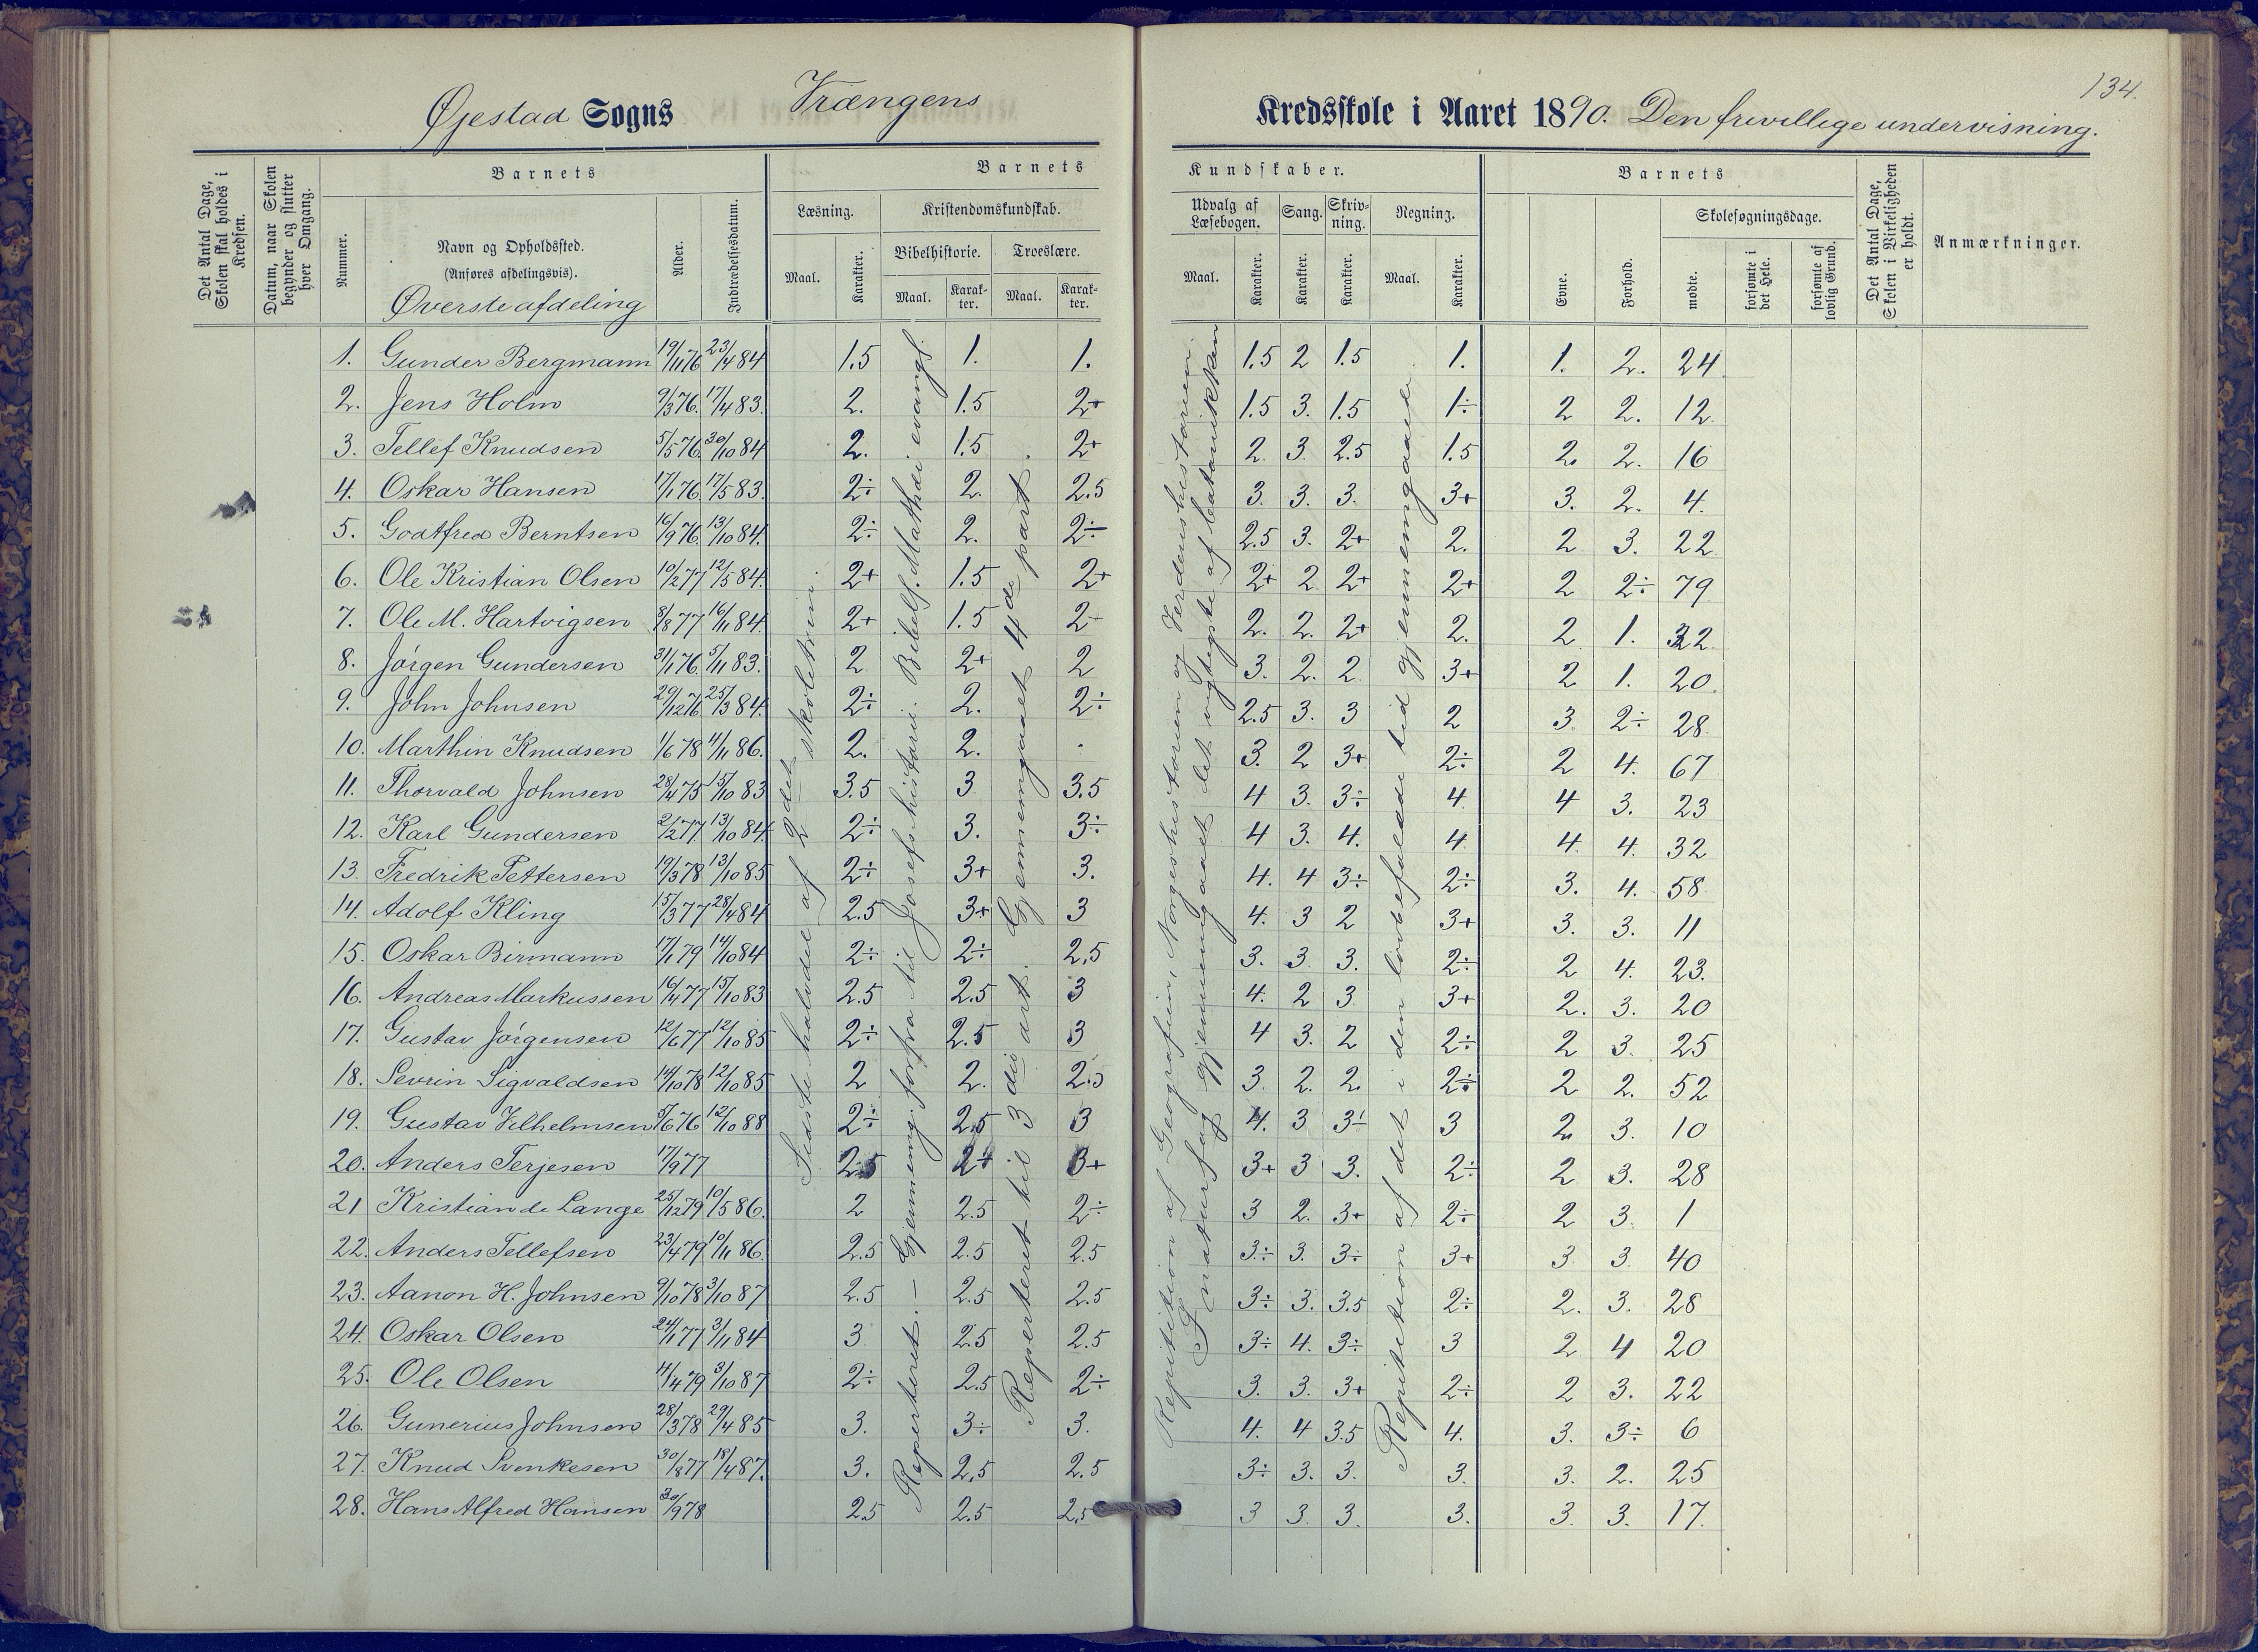 134.
Øjestad Sogns Vrængens Kredsskole i Aaret 1890. Den frivillige undervisning.
Det Antal Dage, Skolen skal holdes i Kredsen.
Datum, naar Skolen begynder og slutter hver Omgang.
Nummer.
Barnets
Navn og Opholdssted.
(Anføres afdelingsvis).
Øverste afdeling
Alder.
Indtrædelsesdatum.
Barnets Kundskaber.
Læsning.
Maal.
Karakter.
Kristendomskundskab.
Bibelhistorie.
Maal.
Karak-ter.
Troeslære.
Maal.
Karak-ter.
Udvalg af Læsebogen.
Maal.
Karakter.
Sang.
Karakter.
Skriv-ning.
Karakter.
Regning.
Maal.
Karakter.
Barnets
Evne.
Forhold.
Skolesøgningsdage.
mødte.
forsømte i det Hele.
forsømte af lovlig Grund.
Det Antal Dage, Skolen i Virkeligheden er holdt.
Anmærkninger.
1. Gunder Bergmann 19/11 76 23/4 84 1.5 1. 1. 1.5 2 1.5 1. 1. 2. 24
2. Jens Holm 9/3 76. 17/4 83. 2. 1.5 2+ 1.5 3. 1.5 1÷ 2 2. 12
3. Tellef Knudsen 5/5 76 30/10 84 2. 1.5 2+ 2 3 2.5 1.5 2. 2. 16
4. Oskar Hansen 17/1 76 17/5 83. 2÷ 2. 2.5 3. 3. 3. 3+ 3. 2. 4.
5. Godtfred Berntsen 16/9 76. 13/10 84. 2÷ 2. 2÷ 2.5 3. 2+ 2. 2 3. 22
6. Ole Kristian Olsen 10/2 77 12/5 84. 2+ 1.5 2+ 2+ 2 2+ 2+ 2 2÷ 79
7. Ole M. Hartvigsen 8/8 77 16/11 84. 2+ 1.5 2- 2. 2. 2+ 2. 2 1. 32
8. Jørgen Gundersen 3/1 76. 5/11 83. 2 2+ 2 3. 2. 2 3+ 2 1. 20.
9. John Johnsen 29/12 76 25/3 84. 2÷ 2. 2÷ 2.5 3. 3 2 3 2÷ 28
10. Marthin Knudsen 1/6 78 4/11 86. 2. 2. 3. 2 3+ 2÷ 2 4. 67
11. Thorvald Johnsen 28/4 75 15/10 83 3.5 3 3.5 4 3. 3÷ 4. 4 3. 23
12. Karl Gundersen 2/2 77 13/10 84. 2÷ 3. 3÷ 4 3. 4. 4 4 4. 32
13. Fredrik Pettersen 19/3 78 13/10 85 2÷ 3+ 3. 4. 4 3÷ 2÷ 3. 4. 58
14. Adolf Kling 15/3 77 28/4 84 2.5 3+ 3 4. 3 2 3+ 3. 3. 11
15. Oskar Birmann 17/1 79 14/10 84 2÷ 2÷ 2.5 3. 3 3. 2÷ 2 4. 23.
16. Andreas Markussen 16/4 77 15/10 83 2.5 2.5 3 4. 2 3 3+ 2. 3. 20
17. Gustav Jørgensen 12/6 77 12/10 85 2÷ 2.5 3 4 3. 2 2÷ 2 3. 25
18. Sevrin Sigvaldsen 14/10 78 12/10 85 2 2. 2.5 3. 2. 2. 2÷ 2 2. 52
19. Gustav Vilhelmsen 5/6 76 12/10 88 2÷ 2.5 3 4. 3 3÷ 3 2. 3. 10
20. Anders Terjesen 17/9 77 2.5 2+ 3+ 3+ 3 3. 2÷ 2 3. 28
21 Kristian de Lange 25/12 79 10/5 86. 2 2.5 2÷ 3 2. 3+ 2÷ 2 3. 1
22. Anders Tellefsen 23/4 79 10/11 86. 2.5 2.5 2.5 3÷ 3. 3÷ 3+ 3 3. 40
23. Aanon H. Johnsen 9/10 78 3/10 87 2.5 2.5 2.5 3÷ 3. 3.5 2÷ 2. 3. 28
24. Oskar Olsen 24/1 77 3/11 84 3 2.5 2.5 3÷ 4. 3÷ 3 2 4 20
25. Ole Olsen 4/4 79 3/10 87 2÷ 2.5 2÷ 3. 3. 3+ 2÷ 2 3. 22
26. Gunerius Johnsen 28/3 78 29/4 85 3. 3÷ 3. 4. 4 3.5 4. 3. 3÷ 6
27. Knud Svenkesen 30/8 77 18/4 87. 3. 2.5 2.5 3÷ 3. 3. 3. 3. 2. 25
28. Hans Alfred Hansen 30/9 78 2.5 2.5 2.5 3 3. 3. 3. 3. 3. 17.
Sidste halvdel af 2det skoletrin.
Repeteret. – Gjennemg. forfra til Josefs historie. Bibelf. Matthdi evangl.
Repeteret til 3die art. Gjennemgaaet 4de part.
Repitition af Geografien, Norgeshistorien og Verdenshistorien.
I naturfag gjennemgaaet det vigtigste af botanikken
Repitition af det i den lovbefalede tid gjennemgaaede.